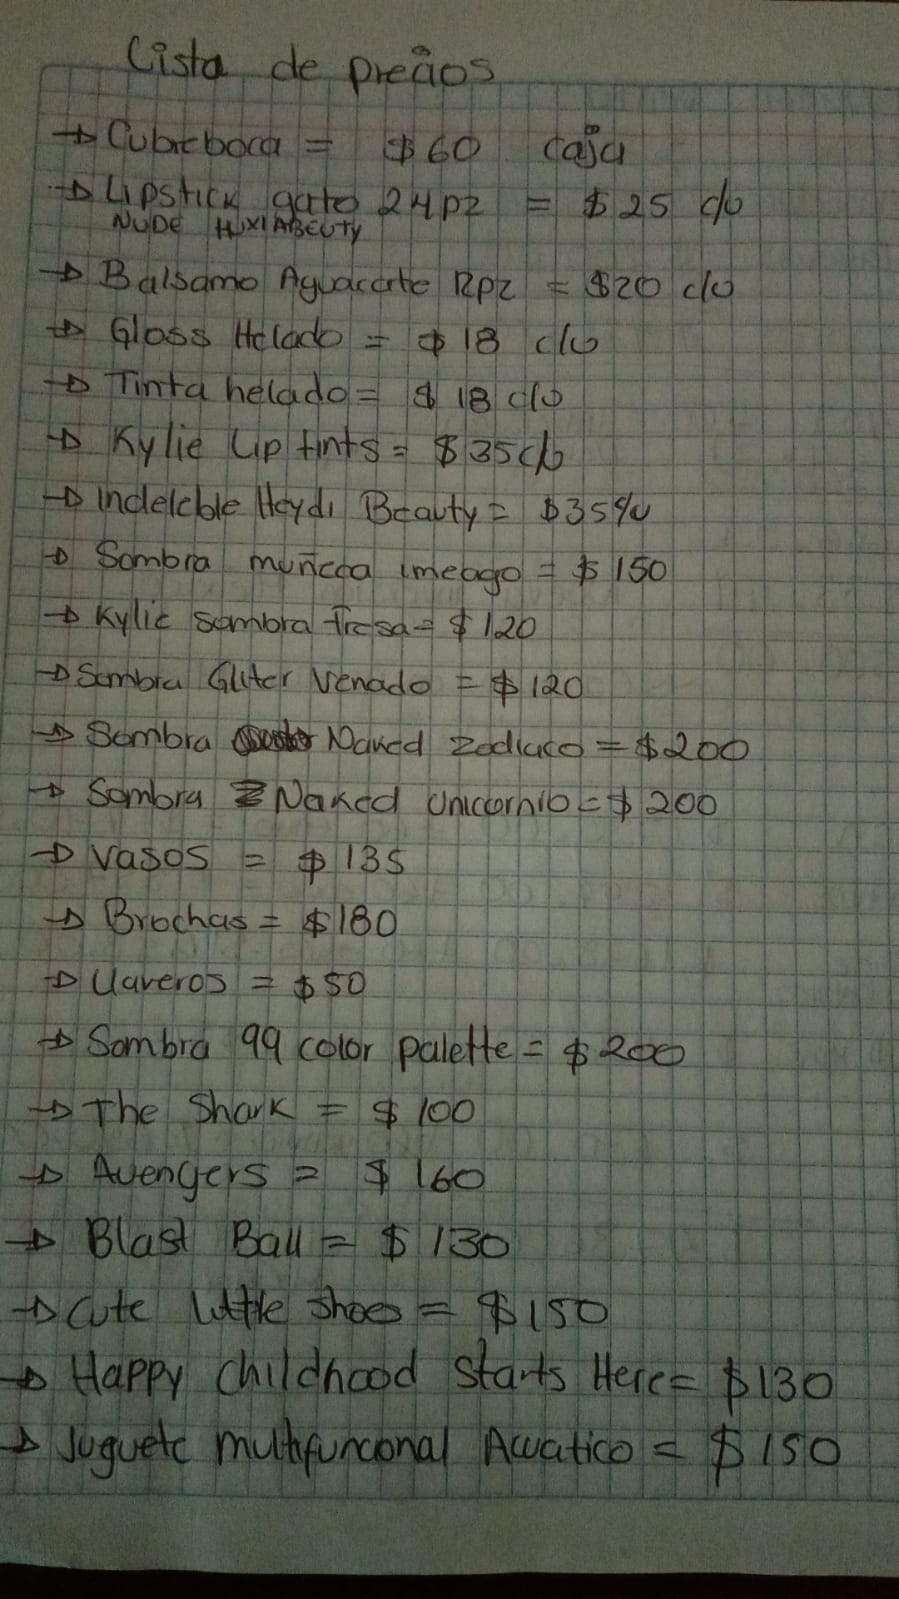 Lista de precios
→ Cubreboca = $60 caja
→ Lipstick gato 24pz = $25 c/u
NUDE HUXIABEUTY
→ Balsamo Aguacate 12pz = $20 c/u
→ Gloss Helado = $18 c/u
→ Tinta helado = $18 c/u
→ Kylie Lip tints = $35 c/u
→ Indeleble Heydi Beauty = $35 c/u
→ Sombra muñeca imeago = $150
→ Kylie sombra fresa = $120
→ Sombra Gliter Venado = $120
→ Sombra Naked Zodiaco = $200
→ Sombra Naked Unicornio = $200
→ Vasos = $135
→ Brochas = $180
→ Llaveros = $50
→ Sombra 99 color palette = $200
→ The Shark = $100
→ Avengers = $160
→ Blast Ball = $130
→ Cute Little shoes = $150
→ Happy childhood starts Here = $130
→ Juguete multifuncional Acuatico = $150